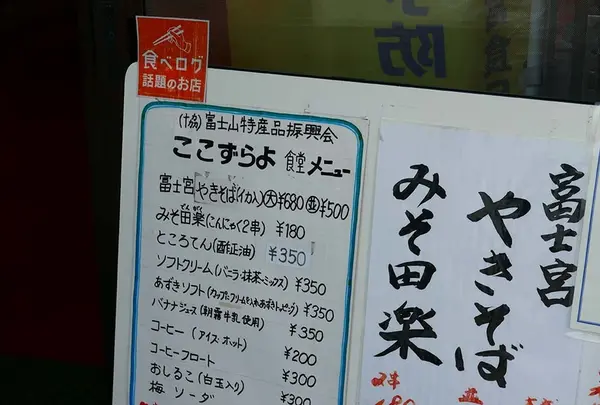 食べログ
話題のお店
(協)富士山特産品振興会
ここずらよ 食堂 メニュー
富士宮やきそば(イカ入)大¥680 並¥500
みそ田楽(こんにゃく2串) ¥180
でんがく
ところてん(酢正油) ¥350
ソフトクリーム(バニラ・抹茶・ミックス) ¥350
あずきソフト ¥350
バナナジュース(朝霧牛乳使用) ¥350
コーヒー(アイス・ホット) ¥200
コーヒーフロート ¥300
おしるこ(白玉入り) ¥300
梅ソーダ
富士宮
やきそば
みそ田楽
予防